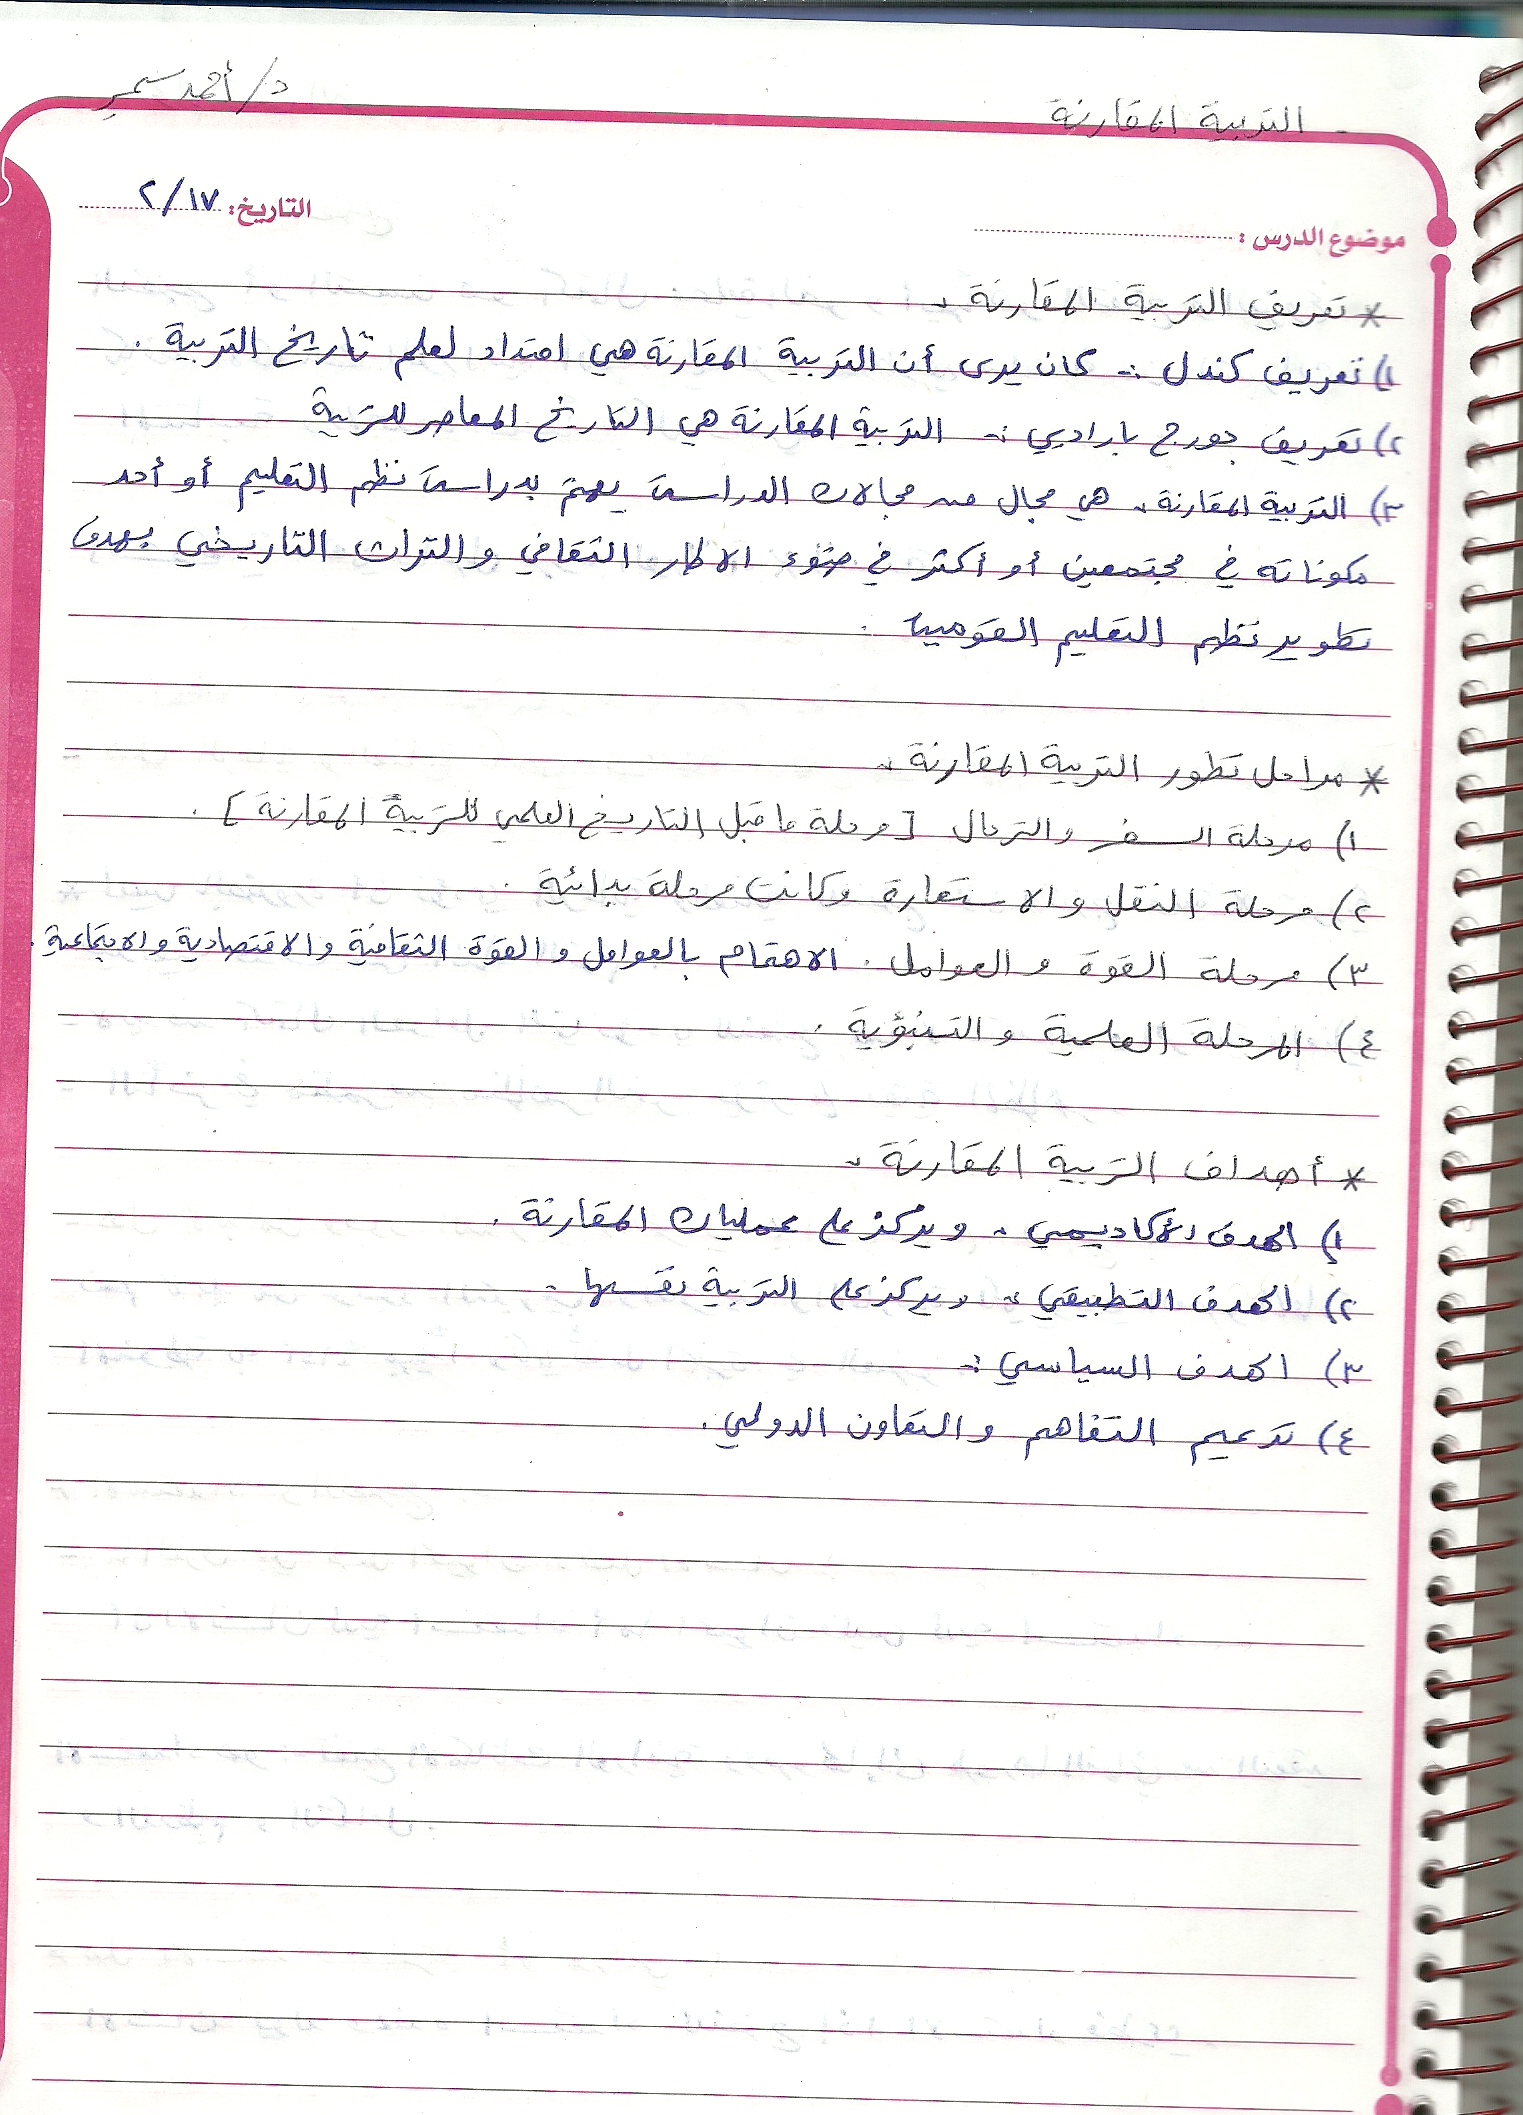 - التربية المقارنة
د/أحمد سمير
موضوع الدرس :
التاريخ: ١٧/٢
* تعريف التربية المقارنة :-
١) تعريف كندل :- كان يرى أن التربية المقارنة هي امتداد لعلم تاريخ التربية .
٢) تعريف جورج باراديي :- التربية المقارنة هي التاريخ المعاصر للتربية
٣) التربية المقارنة :- هي مجال من مجالات الدراسة يهتم بدراسة نظم التعليم أو أحد
مكوناته في مجتمعين أو أكثر في ضوء الاطار الثقافي والتراث التاريخي بهدف
تطوير نظم التعليم القومية .
* مراحل تطور التربية المقارنة :-
١) مرحلة السفر والترحال [ مرحلة ما قبل التاريخ العلمي للتربية المقارنة ] .
٢) مرحلة النقل والاستعارة وكانت مرحلة بدائية .
٣) مرحلة القوة والعوامل . الاهتمام بالعوامل والقوة الثقافية والاقتصادية والاجتماعية .
٤) المرحلة العلمية والتنبؤية .
* أهداف التربية المقارنة :-
١) الهدف الأكاديمي :- ويركز على عمليات المقارنة .
٢) الهدف التطبيقي :- ويركز على التربية نفسها .
٣) الهدف السياسي :-
٤) تدعيم التفاهم والتعاون الدولي .